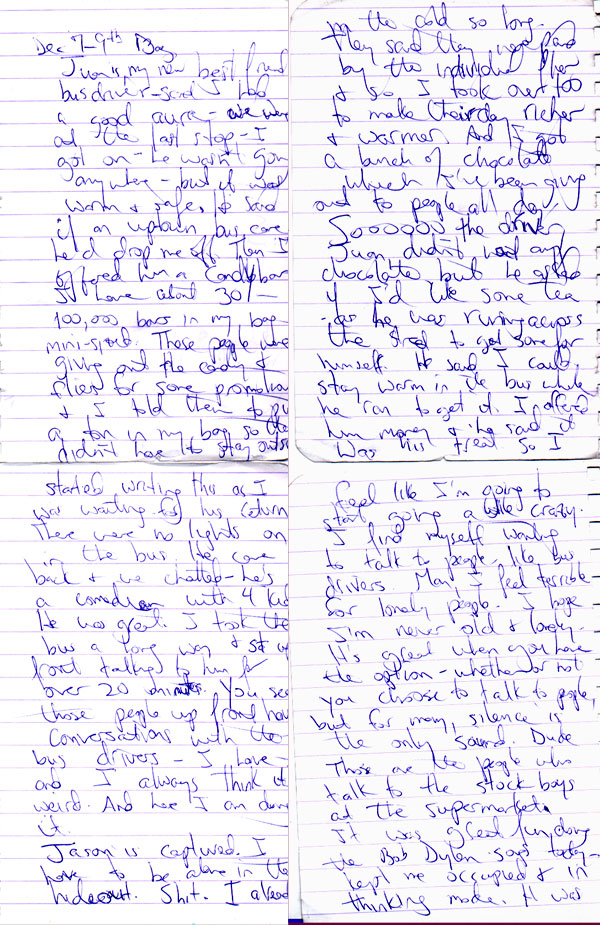 Dec 7-9th Day
Juan is my new best friend
bus driver - said I had
a good aura - we were
at the last stop - I
got on - he wasn't goin
anywhere - but it was
warm & safe, & said
if an uptown bus came
he'd drop me off. Then I
offered him a candybar
I have about 30/-
100,000 bars in my bag -
mini-sized. These people were
giving out the candy &
flies for some promotion
& I told them to pu
a ton in my bag so the
didn't have to stay outside
in the cold so long.
They said they were paid
by the individual flier
& so I took out too
to make their day richer
& warmer. And I got
a bunch of chocolate
which I've been giving
out to people all day.
Soooooo the driver,
Juan, didn't want any
chocolate but he asked
if I'd like some tea
- as he was running across
the street to get some for
himself. He said I could
stay warm in the bus while
he ran to get it. I offered
him money & he said it
was his treat so I
started writing this as I
was waiting for his return
There were no lights on
in the bus. He came
back & we chatted - he's
a comedian with 4 kid
He was great. I took the
bus a long way & sat up
front talking to him for
over 20 minutes. You see
those people up front hav
conversations with the
bus drivers - I have -
and I always think it
weird. And here I am doing
it.
Jason is captured. I
have to be alone in the
hideout. Shit. I already
feel like I'm going to
start going a little crazy.
I find myself wanting
to talk to people, like bus
drivers. Man, I feel terrible
for lonely people. I hope
I'm never old & lonely.
It's great when you have
the option - whether or not
you choose to talk to people,
but for many, silence is
the only sound. Dude
Those are the people who
talk to the stock boys
at the supermarket.
It was great fun doing
the Bob Dylan says today -
kept me occupied & in
thinking mode. It was